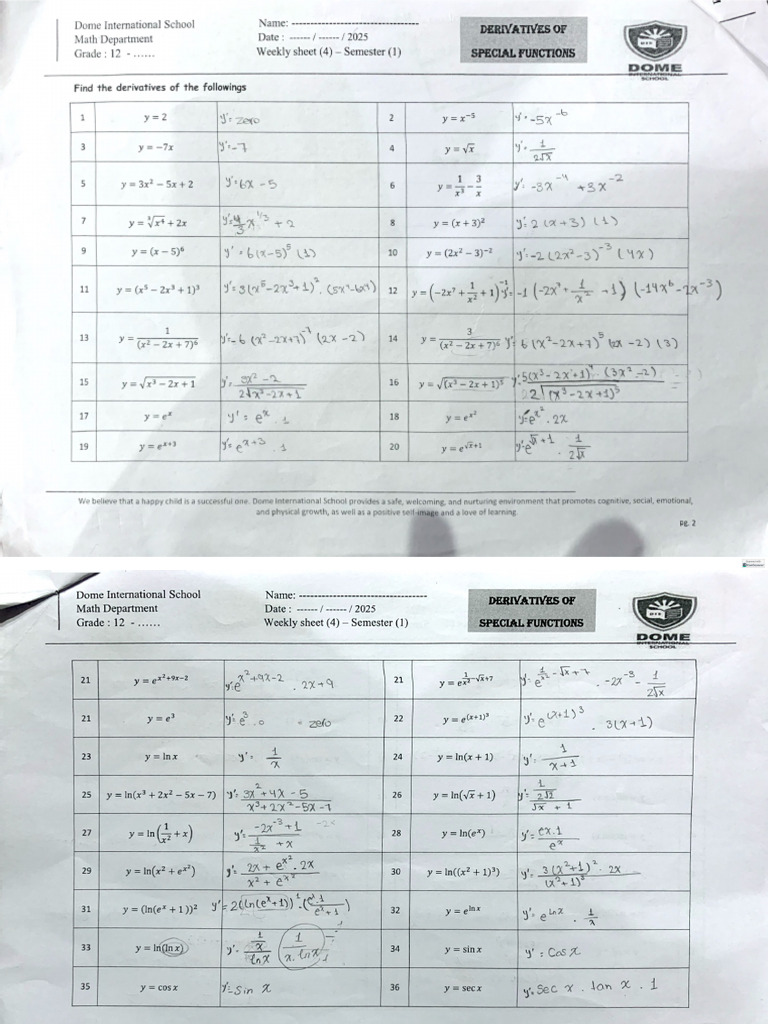 Dome International School
Math Department
Grade : 12 - ......
Name: --------------------------------
Date : ------ / ------ / 2025
Weekly sheet (4) – Semester (1)
DERIVATIVES OF
SPECIAL FUNCTIONS
DIS
DOME
INTERNATIONAL
SCHOOL
Find the derivatives of the followings
1 y = 2 y' = zero 2 y = x⁻⁵ y' = -5x⁻⁶
3 y = −7x y' = -7 4 y = √x y' = 1/(2√x)
5 y = 3x² − 5x + 2 y' = 6x - 5 6 y = 1/x³ − 3/x y' = -3x⁻⁴ + 3x⁻²
7 y = ∛(x⁴) + 2x y' = 4/3 x^(1/3) + 2 8 y = (x + 3)² y' = 2(x+3)(1)
9 y = (x − 5)⁶ y' = 6(x-5)⁵ (1) 10 y = (2x² − 3)⁻² y' = -2(2x²-3)⁻³ (4x)
11 y = (x⁵ − 2x³ + 1)³ y' = 3(x⁵-2x³+1)². (5x⁴-6x²) 12 y = (−2x⁷ + 1/x² + 1)⁻¹ y' = -1 (-2x⁷ + 1/x² + 1) (-14x⁶ - 2x⁻³)
13 y = 1/(x² − 2x + 7)⁶ y' = -6 (x²-2x+7)⁻⁷ (2x-2) 14 y = 3/(x² − 2x + 7)⁶ y' = 6(x²-2x+7)⁵ (2x-2) (3)
15 y = √(x³ − 2x + 1) y' = (3x²-2)/(2√(x³-2x+1)) 16 y = √((x³ − 2x + 1)⁵) y' = 5(x³-2x+1)⁴ (3x²-2)/(2√((x³-2x+1)⁵))
17 y = eˣ y' = eˣ . 1 18 y = e^(x²) y' = e^(x²) . 2x
19 y = e^(x+3) y' = e^(x+3) . 1 20 y = e^(√x+1) y' = e^(√x+1) . 1/(2√x)
We believe that a happy child is a successful one. Dome International School provides a safe, welcoming, and nurturing environment that promotes cognitive, social, emotional,
and physical growth, as well as a positive self-image and a love of learning.
pg. 2
Dome International School
Math Department
Grade : 12 - ......
Name: --------------------------------
Date : ------ / ------ / 2025
Weekly sheet (4) – Semester (1)
DERIVATIVES OF
SPECIAL FUNCTIONS
DIS
DOME
SCHOOL
21 y = e^(x²+9x−2) y' = e^(x²+9x-2) . 2x+9 21 y = e^(1/x²−√x+7) y' = e^(1/x²-√x+7) . -2x⁻³ - 1/(2√x)
21 y = e³ y' = e³ . 0 = zero 22 y = e^((x+1)³) y' = e^((x+1)³) . 3(x+1)
23 y = ln x y' = 1/x 24 y = ln(x + 1) y' = 1/(x+1)
25 y = ln(x³ + 2x² − 5x − 7) y' = (3x²+4x-5)/(x³+2x²-5x-7) 26 y = ln(√x + 1) y' = (1/(2√x))/(√x + 1)
27 y = ln(1/x² + x) y' = (-2x⁻³+1)/(1/x² + x) 28 y = ln(eˣ) y' = (eˣ.1)/eˣ
29 y = ln(x² + e^(x²)) y' = (2x + e^(x²) . 2x)/(x² + e^(x²)) 30 y = ln((x² + 1)³) y' = (3(x²+1)² . 2x)/(x²+1)³
31 y = (ln(eˣ + 1))² y' = 2(ln(eˣ+1))¹ . (eˣ.1/(eˣ+1)) 32 y = e^(ln x) y' = e^(ln x) . 1/x
33 y = ln(ln x) y' = (1/x)/(ln x) 1/(x . ln x) 34 y = sin x y' = Cos x
35 y = cos x y' = -Sin x 36 y = sec x y' = Sec x . tan x . 1